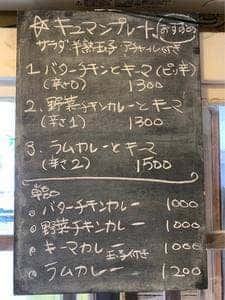 ☆キュマンプレート(おすすめ
サラダ・半熟玉子 アチャール付き
1. バターチキンとキーマ(ピリ辛)
(辛さ0) 1300
2. 野菜チキンカレーとキーマ
(辛さ1) 1300
3. ラムカレーとキーマ
(辛さ2) 1500
単品
◎ バターチキンカレー 1000
◎ 野菜チキンカレー 1000
◎ キーマカレー 玉子付き 1000
◎ ラムカレー 1200